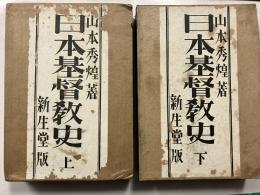 山本秀煌著
日本基督教史 上
新生堂版
山本秀煌著
日本基督教史 下
新生堂版